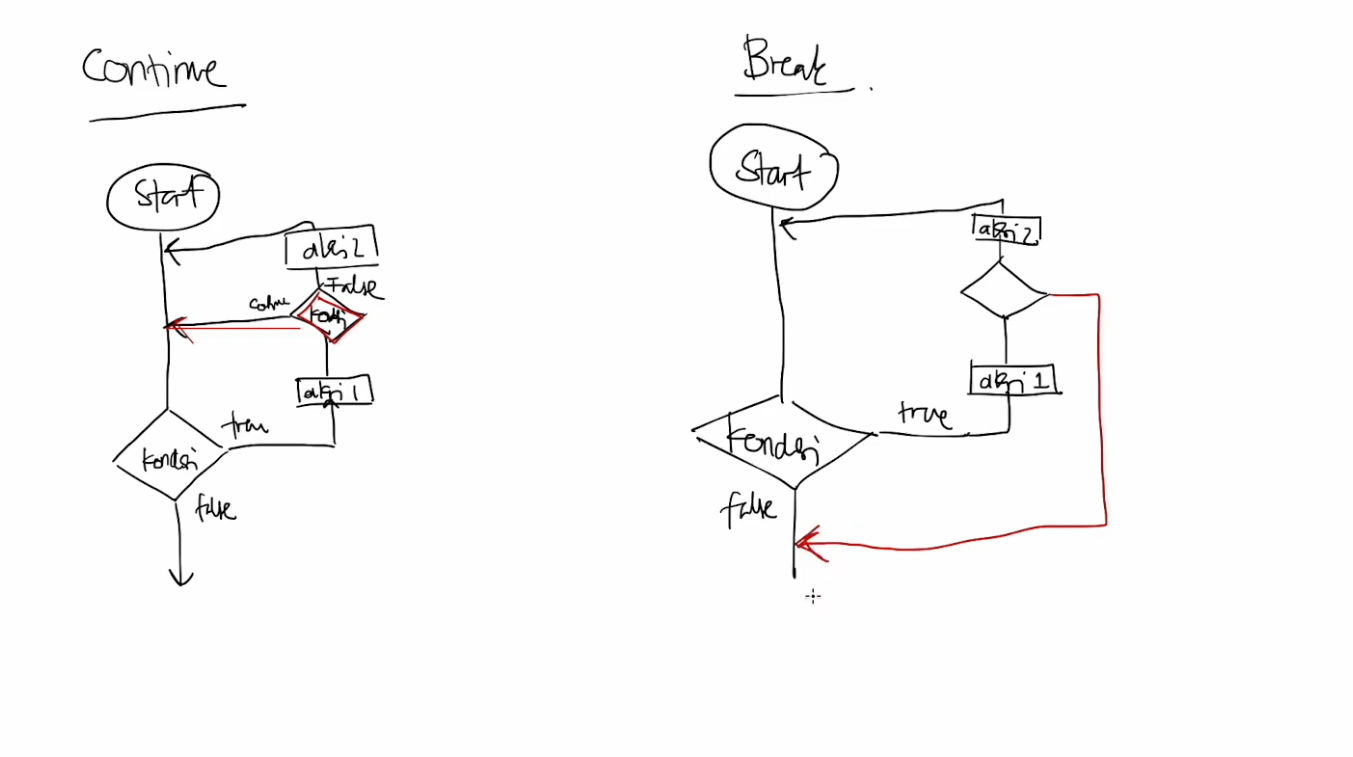 Continue
Start
aksi 2
False
kondisi
aksi 1
true
kondisi
false
Break
Start
aksi 2
aksi 1
true
kondisi
false